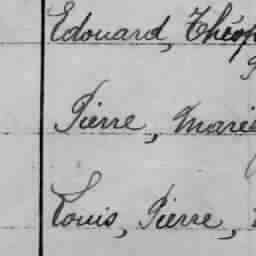 Edouard, Théop
Pierre, Marie
Louis, Pierre,